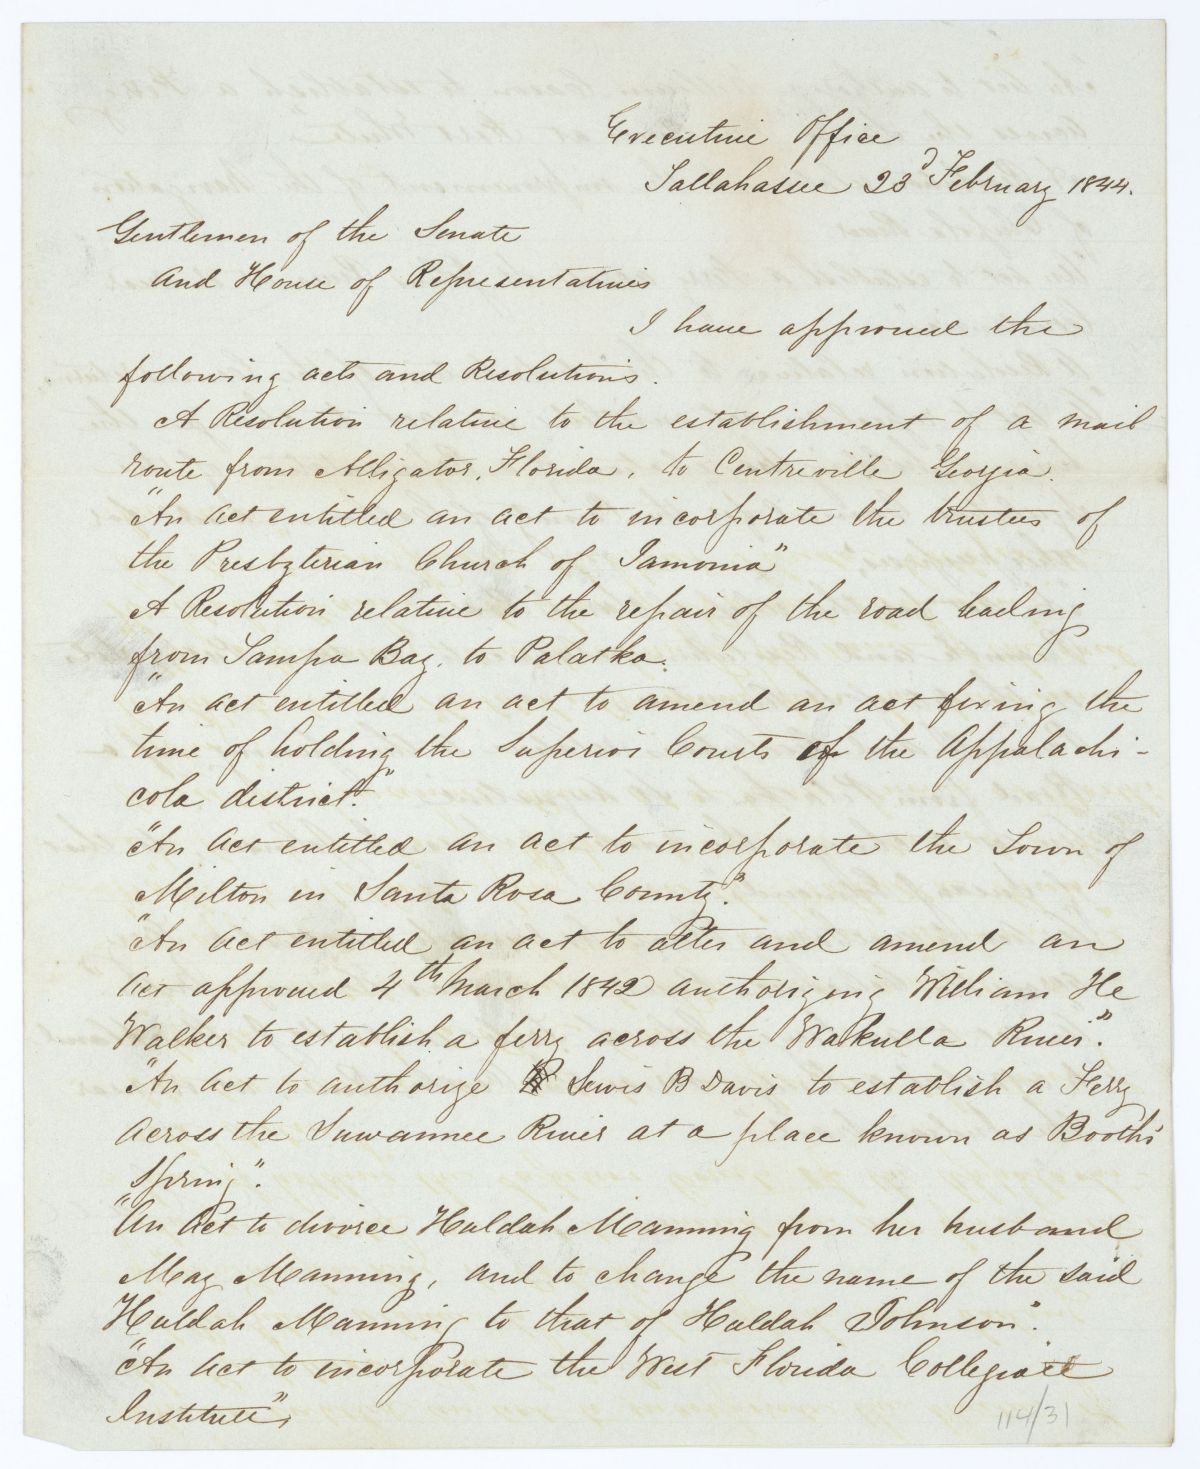 Executive Office
Tallahassee 23d February 1844.
Gentlemen of the Senate
And House of Representatives
I have approved the
following acts and Resolutions.
A Resolution relative to the establishment of a mail
route from Alligator, Florida, to Centreville Georgia.
"An Act entitled an act to incorporate the trustees of
the Presbyterian Church of Iamonia"
A Resolution relative to the repair of the road leading
from Tampa Bay, to Palatka.
"An act entitled an act to amend an act fixing the
time of holding the Superior Courts of the Appalachi-
cola district."
"An Act entitled an act to incorporate the Town of
Milton in Santa Rosa County."
"An Act entitled an act to alter and amend an
Act approved 4th March 1842 authorizing William H
Walker to establish a ferry across the Wakulla River."
"An Act to authorize Lewis B Davis to establish a Ferry
Across the Suwannee River at a place known as Booth's
Spring".
"An Act to divorce Huldah Manning from her husband
May Manning, and to change the name of the said
Huldah Manning to that of Huldah Johnson".
"An Act to incorporate the West Florida Collegiate
Institute",
114/31